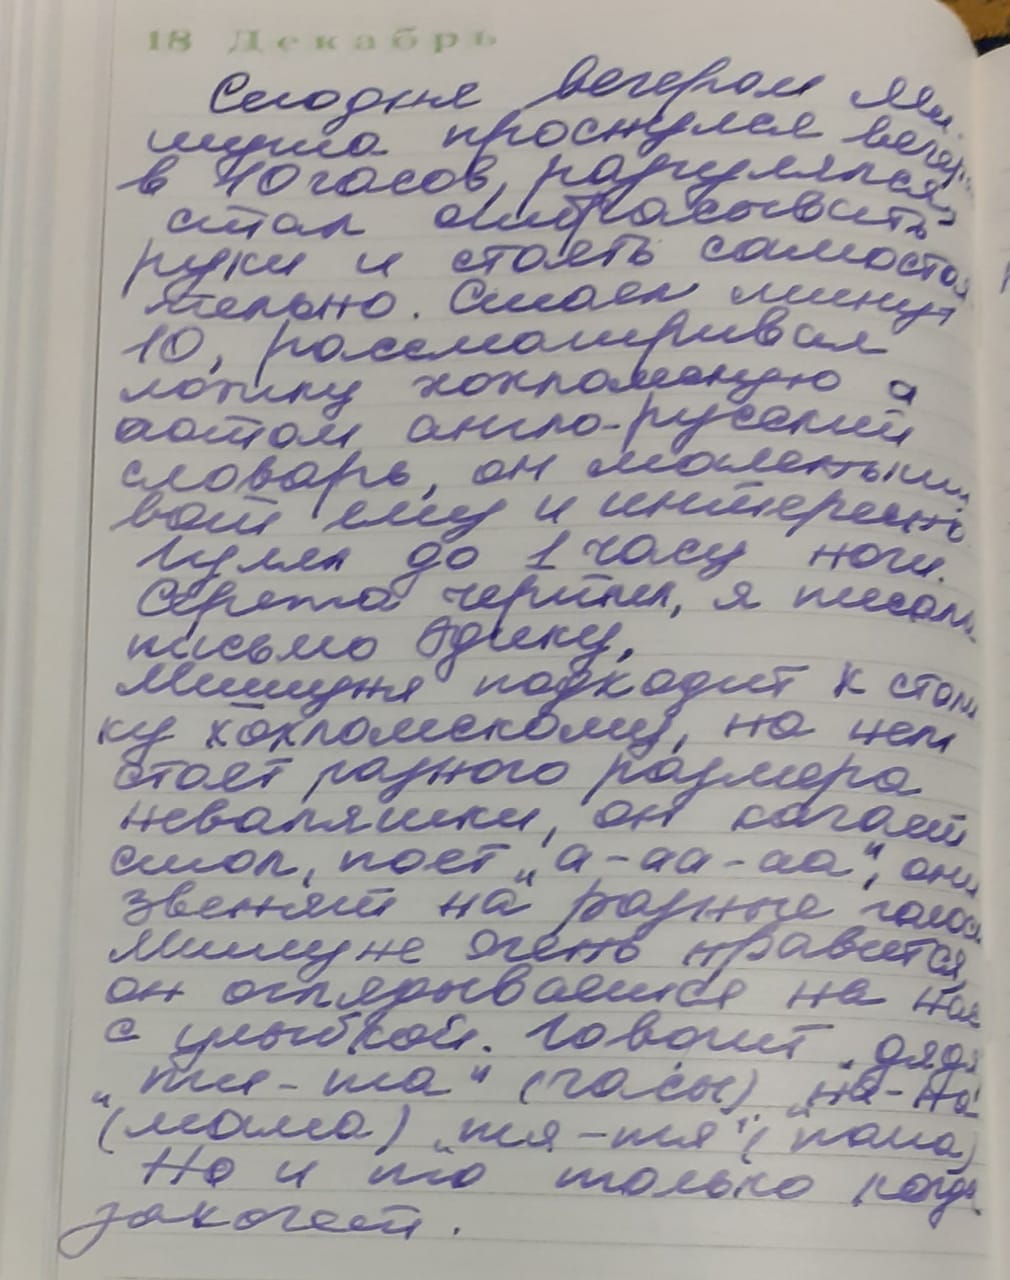 18 Декабрь
Сегодня вечером Ми-
шуня проснулся вечер
в 10 часов, разгулялся,
стал отбрасывать
руки и стоять самостоя
ятельно. Стоял минут
10, рассматривал
ложку хохломскую а
потом англо-русский
словарь, он маленький
вот ему и интересно
Гулял до 1 часу ночи.
Сережа чертил, я писала
письмо Эдику.
Мишуня подходит к столи
ку хохломскому, на нем
стоят разного размера
неваляшки, он качает
стол, поет „а-аа-аа", они
звенят на разные голоса
Мишуне очень нравится,
он оглядывается на нас
с улыбкой. Говорит „дядя
„ти-та" (часы) „на-на
(мама) „тя-тя" (папа)
Но и то только когда
захочет.